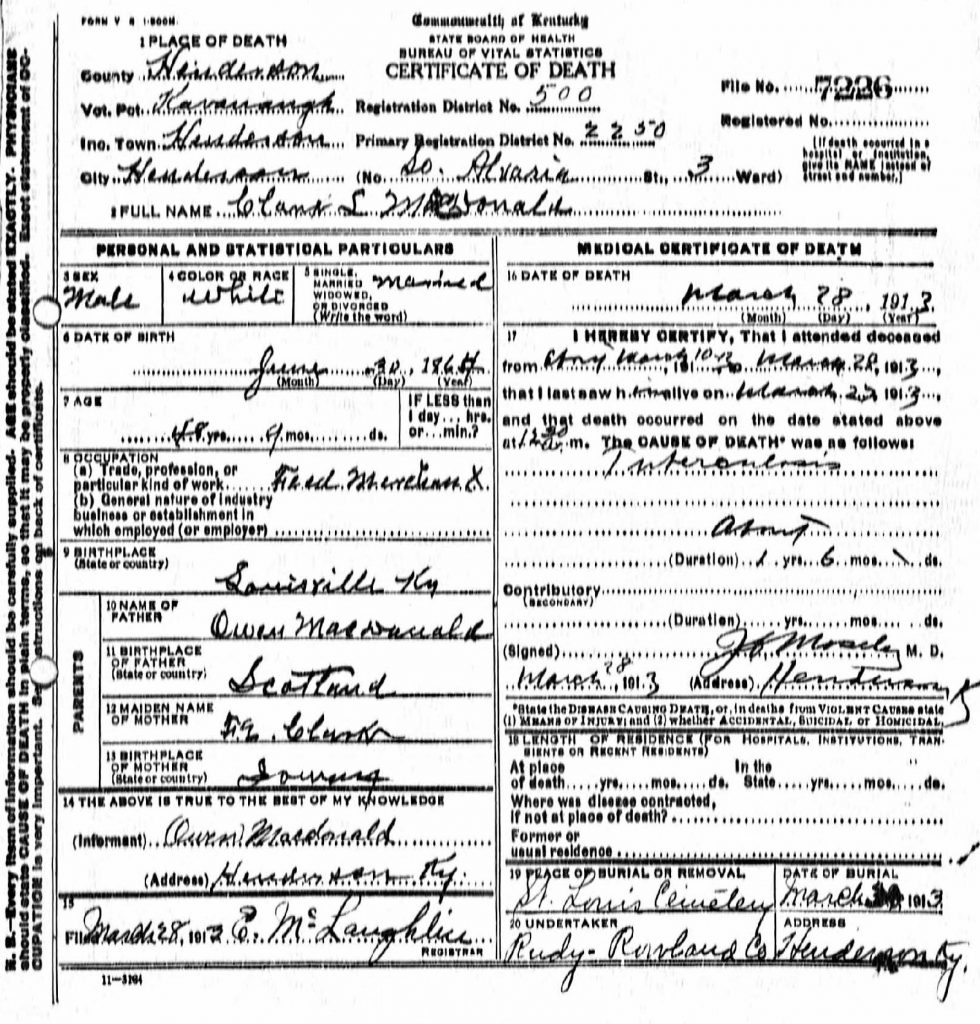 FORM V S 1-500M.
Commonwealth of Kentucky
STATE BOARD OF HEALTH
BUREAU OF VITAL STATISTICS
CERTIFICATE OF DEATH
1 PLACE OF DEATH
County Henderson
Vot. Pct. Kavanaugh Registration District No. 500
Inc. Town Henderson Primary Registration District No. 2250
City Henderson (No. So. Alvasia St., 3 Ward)
File No. 7226
Registered No.
[If death occurred in a hospital or institution, give its NAME instead of street and number.]
2 FULL NAME Clark L MacDonald
PERSONAL AND STATISTICAL PARTICULARS
3 SEX
Male
4 COLOR OR RACE
White
5 SINGLE, MARRIED, WIDOWED, OR DIVORCED (Write the word)
Married
6 DATE OF BIRTH
June 30, 1864
(Month) (Day) (Year)
7 AGE
48 yrs. 9 mos. ds.
IF LESS than 1 day, hrs. or min.?
8 OCCUPATION
(a) Trade, profession, or particular kind of work Feed Merchant
(b) General nature of industry business or establishment in which employed (or employer)
9 BIRTHPLACE
(State or country)
Louisville Ky
PARENTS
10 NAME OF FATHER
Owen MacDonald
11 BIRTHPLACE OF FATHER
(State or country)
Scotland
12 MAIDEN NAME OF MOTHER
Clark
13 BIRTHPLACE OF MOTHER
(State or country)
14 THE ABOVE IS TRUE TO THE BEST OF MY KNOWLEDGE
(Informant) Owen Macdonald
(Address) Henderson Ky.
15
Filed March 28, 1913 E. McLaughlin
REGISTRAR
11-3184
MEDICAL CERTIFICATE OF DEATH
16 DATE OF DEATH
March 28, 1913
(Month) (Day) (Year)
17 I HEREBY CERTIFY, That I attended deceased
from March 10, 191 to March 28, 1913,
that I last saw him alive on March 27, 1913,
and that death occurred on the date stated above
at m. The CAUSE OF DEATH* was as follows:
Tuberculosis
About
(Duration) 1 yrs. 6 mos. ds.
Contributory
(SECONDARY)
(Duration) yrs. mos. ds.
(Signed) Mosely M. D.
March 28, 1913 (Address) Henderson Ky
*State the DISEASE CAUSING DEATH, or, in deaths from VIOLENT CAUSES state
(1) MEANS OF INJURY; and (2) whether ACCIDENTAL, SUICIDAL or HOMICIDAL.
18 LENGTH OF RESIDENCE (FOR HOSPITALS, INSTITUTIONS, TRANSIENTS OR RECENT RESIDENTS)
At place of death yrs. mos. ds. In the State yrs. mos. ds.
Where was disease contracted,
if not at place of death?
Former or
usual residence
19 PLACE OF BURIAL OR REMOVAL
St. Louis Cemetery
DATE OF BURIAL
March 30 1913
20 UNDERTAKER
Rudy-Rowland Co
ADDRESS
Henderson Ky.
N. B.—Every item of information should be carefully supplied. AGE should be stated EXACTLY. PHYSICIANS
should state CAUSE OF DEATH in plain terms, so that it may be properly classified. Exact statement of OC-
CUPATION is very important. See instructions on back of certificate.